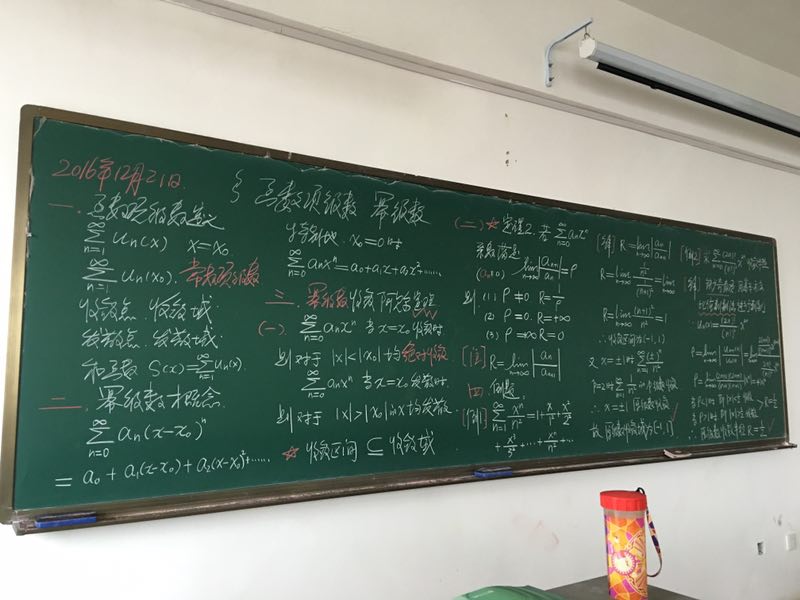 2016年12月21日
§ 函数项级数 幂级数
一、函数项级数定义
∑_{n=1}^∞ u_n(x) x=x_0
∑_{n=1}^∞ u_n(x_0). 常数项级数
收敛点、收敛域
发散点、发散域.
和函数 S(x)=∑_{n=1}^∞ u_n(x)
二、幂级数概念
∑_{n=0}^∞ a_n(x-x_0)^n
= a_0 + a_1(x-x_0) + a_2(x-x_0)^2+……
特别地, x_0=0时
∑_{n=0}^∞ a_n x^n = a_0+a_1x+a_2x^2+……
三、幂级数收敛阿贝尔定理
(一)、∑_{n=0}^∞ a_n x^n 当x=x_0收敛时
则对于 |x|<|x_0| 均绝对收敛.
∑_{n=0}^∞ a_n x^n 当x=x_0发散时.
则对于 |x|>|x_0|的x均发散
☆ 收敛区间 ⊆ 收敛域
(二)☆ 定理2. 若 ∑_{n=0}^∞ a_n x^n
系数满足
lim_{n→∞} |a_{n+1}/a_n| = ρ
则 (1) ρ≠0 R=1/ρ
(2) ρ=0. R=+∞
(3) ρ=∞ R=0
[注] R=lim_{n→∞} |a_n/a_{n+1}|
四、例题.
[例1] ∑_{n=1}^∞ x^n/n^2 = 1+x/1+x^2/2^2
+x^3/3^2+……+x^n/n^2+……
[解] R=lim_{n→∞} |a_n/a_{n+1}|
R=lim_{n→∞} (1/n^2)/(1/(n+1)^2) = lim_{n→∞}
R=lim_{n→∞} (n+1)^2/n^2 = 1
∴收敛区间为(-1,1)
又 x=±1时 ∑_{n=1}^∞ (±1)^n/n^2
∴ x=±1 级数收敛
故 级数收敛域为[-1,1]
[例2] 求
[解]
u_n(x)=
ρ=lim_{n→∞} |u_{n+1}(x)/u_n(x)|
R=1/2